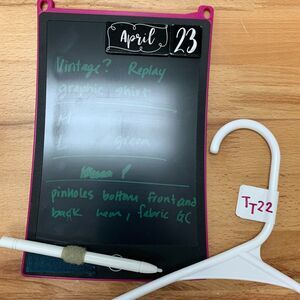 April 23
Vintage? Replay
graphic shirt
M
L green
pinholes bottom front and
back hem, fabric GC
TT22